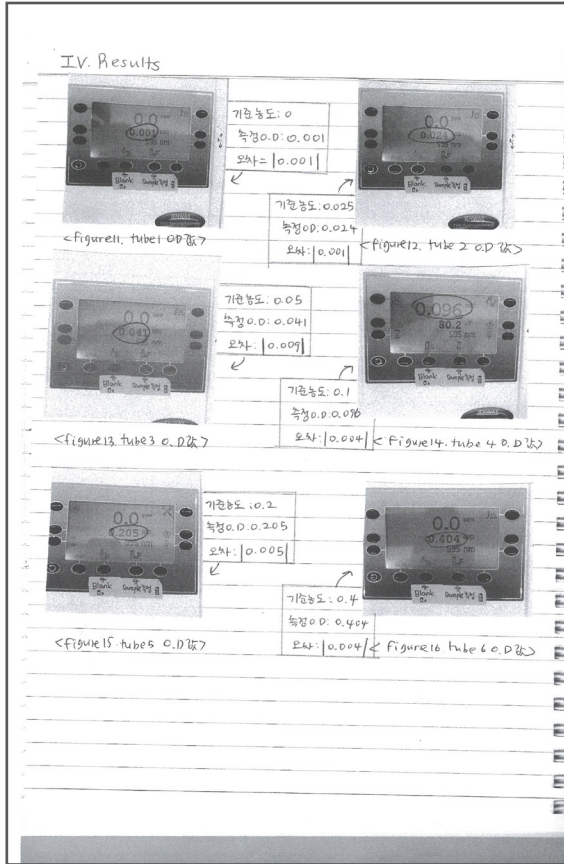 IV. Results
0.0 ppm
0.001
595 nm
Blank
Sample 측정
JENWAY
기준농도: 0
측정O.D: 0.001
오차= |0.001|
<figure11. tube1 O.D값>
0.0 ppm
0.024
595 nm
Blank
Sample 측정
JENWAY
기준농도: 0.025
측정O.D: 0.024
오차: |0.001|
<figure12. tube 2 O.D값>
0.0
0.041
Blank
Sample 측정
기준농도: 0.05
측정O.D: 0.041
오차: |0.009|
<figure13. tube3 O.D값>
0.096
80.2
595 nm
Blank
Sample 측정
기준농도: 0.1
측정O.D: 0.096
오차: |0.004|
<figure14. tube 4 O.D값>
0.0 ppm
0.205
595 nm
Blank
Sample 측정
기준농도: 0.2
측정O.D: 0.205
오차: |0.005|
<figure15. tube5 O.D값>
0.0 ppm
0.404
595 nm
Blank
Sample 측정
기준농도: 0.4
측정O.D: 0.404
오차: |0.004|
<figure16. tube 6 O.D값>